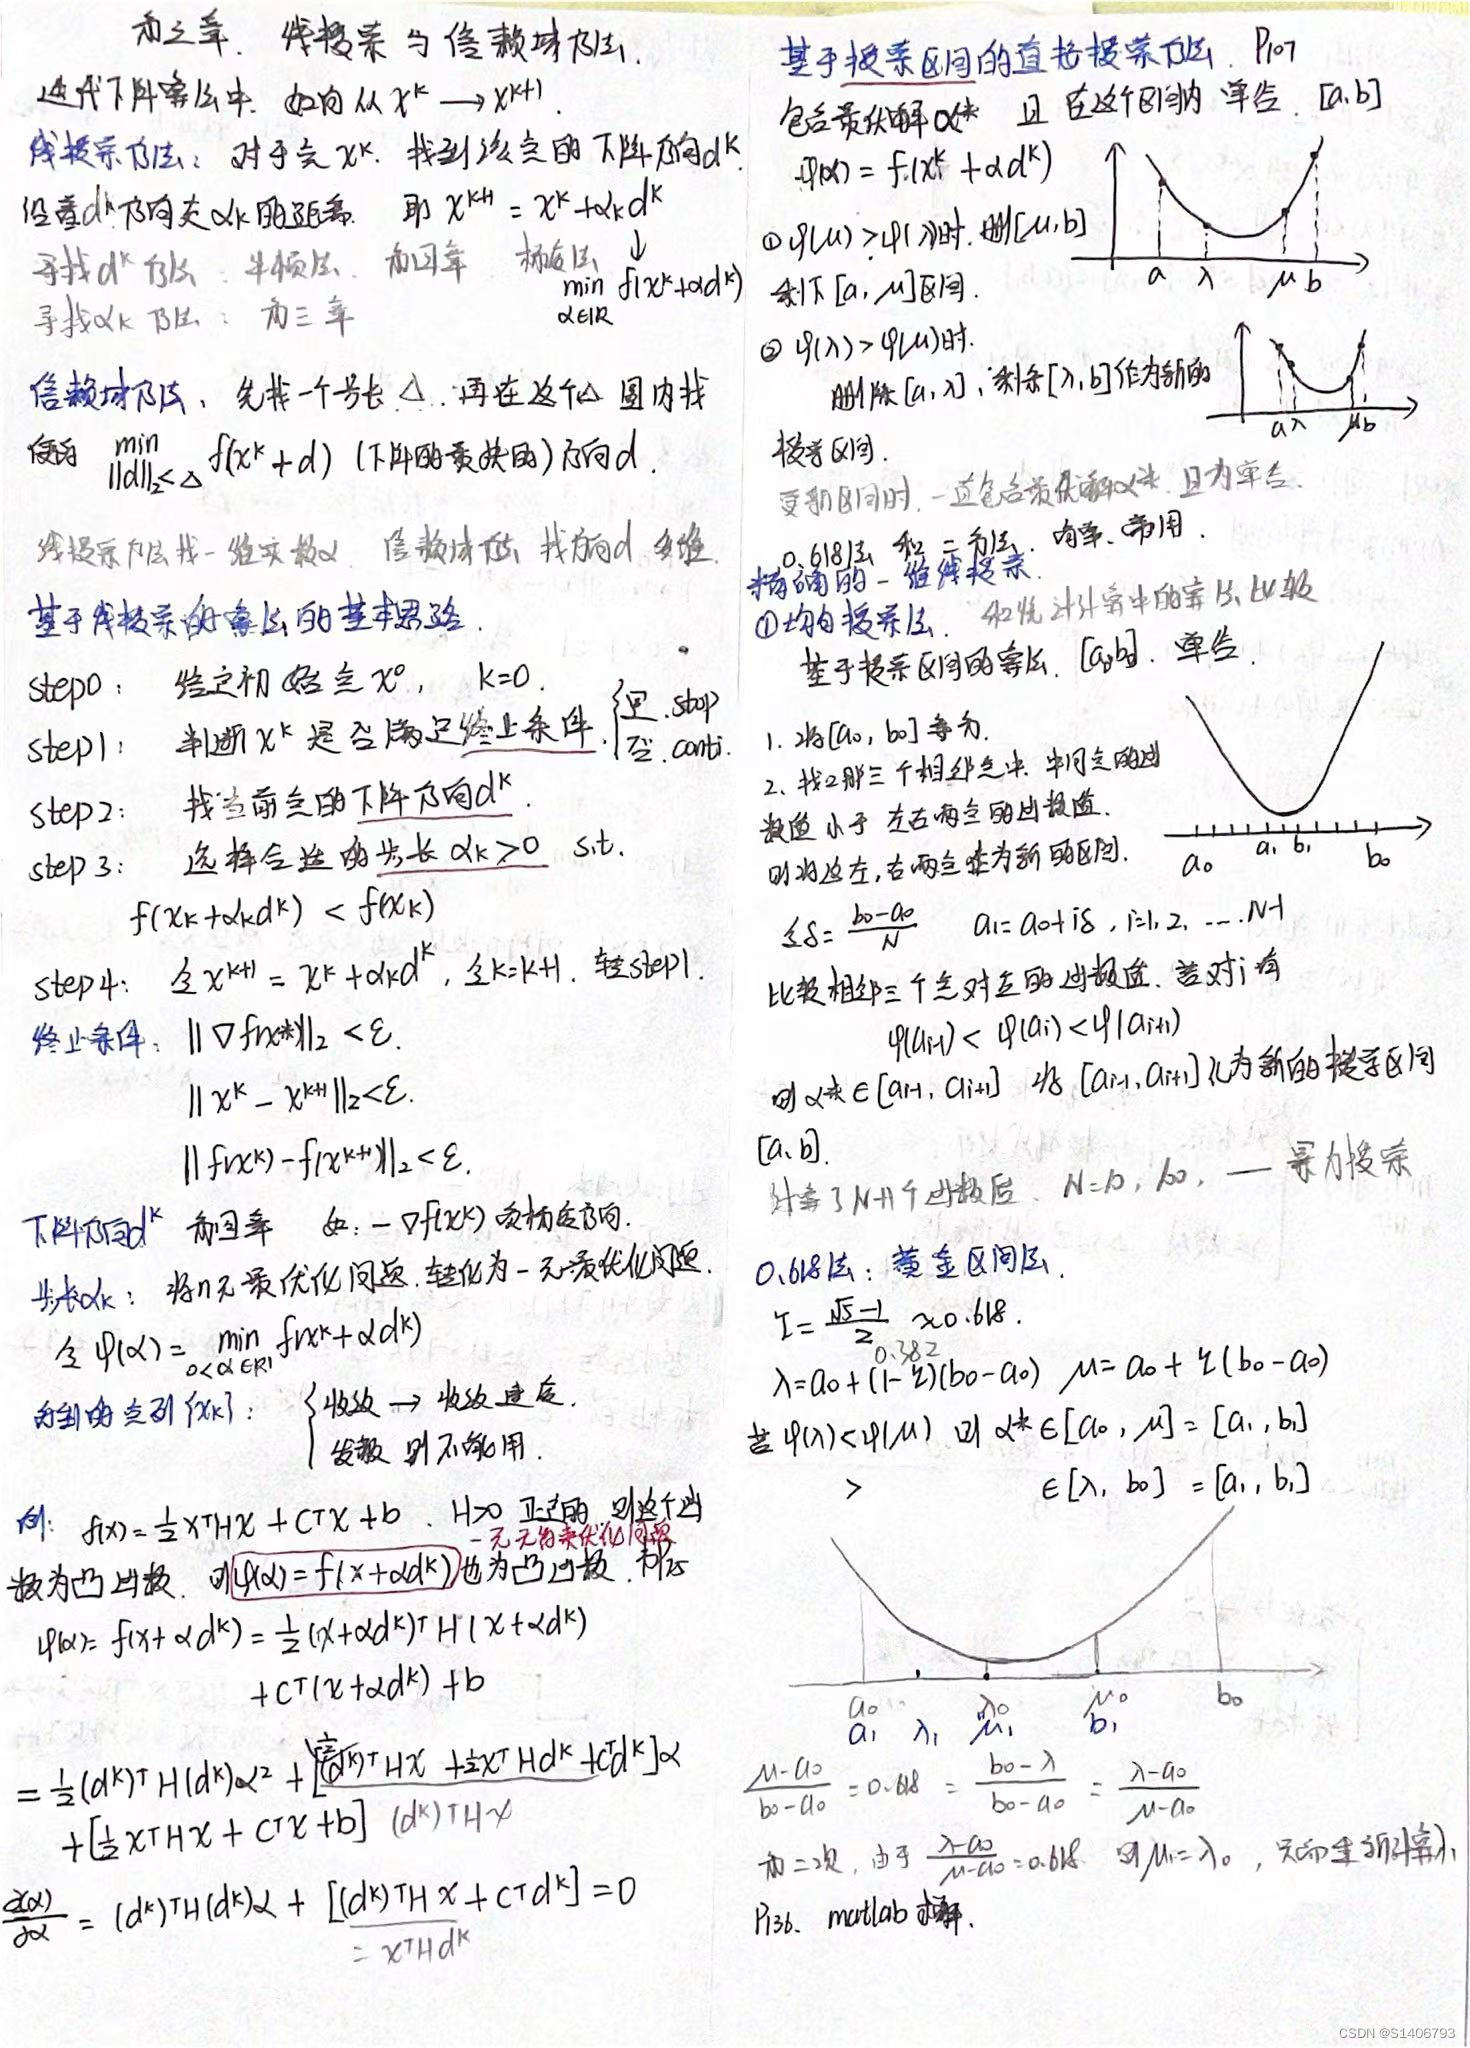 第三章. 线搜索与信赖域方法.
迭代下降算法中. 如何从 x^k → x^{k+1}.
线搜索方法: 对于点 x^k. 找到该点的下降方向 d^k.
沿着 d^k 方向走 α_k 的距离. 取 x^{k+1} = x^k + α_k d^k
↓
寻找 d^k 方法: 牛顿法. 第四章 梯度法
min f(x^k+αd^k)
α∈IR
寻找 α_k 方法: 第三章
信赖域方法、先找一个步长 △. 再在这个△ 圆内找
使得 min f(x^k + d) (下降的最快的) 方向 d.
||d||_2<△
线搜索方法找一维实数α 信赖域方法 找方向d 多维.
基于线搜索的算法的基本思路.
step0: 给定初始点 x^0, k=0.
step1: 判断 x^k 是否满足终止条件. { 是. stop
否. conti.
step2: 找当前点的下降方向 d^k.
step3: 选择合适的步长 α_k>0 s.t.
f(x_k+α_k d^k) < f(x_k)
step4: 令 x^{k+1} = x^k + α_k d^k, 令 k=k+1. 转step1.
终止条件: ||∇f(x^*)||_2 < ε.
||x^k - x^{k+1}||_2 < ε.
||f(x^k) - f(x^{k+1})||_2 < ε.
下降方向d^k 第四章 如: -∇f(x^k) 负梯度方向.
步长α_k: 将n元最优化问题. 转化为一元最优化问题.
令 φ(α) = min f(x^k + αd^k)
0<α∈R1
得到的点列{x_k}: { 收敛 → 收敛速度.
发散 则不能用.
例: f(x) = ½x^THx + C^Tx + b. H>0 正定的 则这个函
一元无约束优化问题
数为凸函数. 则 φ(α) = f(x+αd^k) 也为凸函数.
φ(α) = f(x+αd^k) = ½(x+αd^k)^T H (x+αd^k)
+ C^T(x+αd^k) + b
= ½(d^k)^T H(d^k)α² + [½(d^k)^T Hx + ½x^T Hd^k + C^Td^k]α
+ [½x^THx + C^Tx + b] (d^k)^THx
= (d^k)^TH(d^k)α + [(d^k)^THx + C^Td^k] = 0
= x^THd^k
基于搜索区间的直接搜索方法. P107
包含最优解α* 且 在这个区间内 单谷. [a,b]
φ(α) = f(x^k + αd^k)
① φ(μ) > φ(λ)时. 删[μ,b]
剩下 [a, μ]区间.
a λ μ b
② φ(λ) > φ(μ)时.
删除[a,λ], 剩余[λ,b]作为新的
a λ μ b
搜索区间.
更新区间时. 一直包含最优解α*. 且为单谷.
0.618法 和 二分法. 简单、常用.
精确的一维线搜索.
①均匀搜索法. 和统计计算中的算法比较
基于搜索区间的算法. [a_0,b_0]. 单谷.
1. 将[a_0, b_0]等分.
2. 找2那三个相邻点中. 中间点的函
数值小于左右两点的函数值.
则将这左,右两点变为新的区间.
a_0 a_1 b_1 b_0
令δ = (b_0-a_0)/N a_i = a_0+iδ, i=1, 2, ....N-1
比较相邻三个点对应的函数值. 若对i有
φ(a_{i-1}) < φ(a_i) < φ(a_{i+1})
则 α* ∈ [a_{i-1}, a_{i+1}] 将 [a_{i-1}, a_{i+1}] 化为新的搜索区间
[a, b].
计算了N+1个函数值. —— 暴力搜索
0.618法: 黄金区间法.
τ = (√5-1)/2 ≈ 0.618.
0.382
λ = a_0+(1-τ)(b_0-a_0) μ = a_0+τ(b_0-a_0)
若 φ(λ)<φ(μ) 则 α* ∈[a_0, μ] = [a_1, b_1]
> ∈[λ, b_0] = [a_1, b_1]
a_0 λ_0 μ_0 b_0
a_1 λ_1 μ_1 b_1
(μ-a_0)/(b_0-a_0) = 0.618 = (b_0-λ)/(b_0-a_0) = (λ-a_0)/(μ-a_0)
第二次, 由于 (λ-a_0)/(μ-a_0) = 0.618 则 μ_1=λ_0, 只需重新计算λ_1
P136. matlab 求解.
CSDN @S1406793